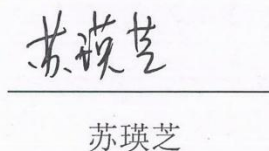 苏瑛芝
苏瑛芝